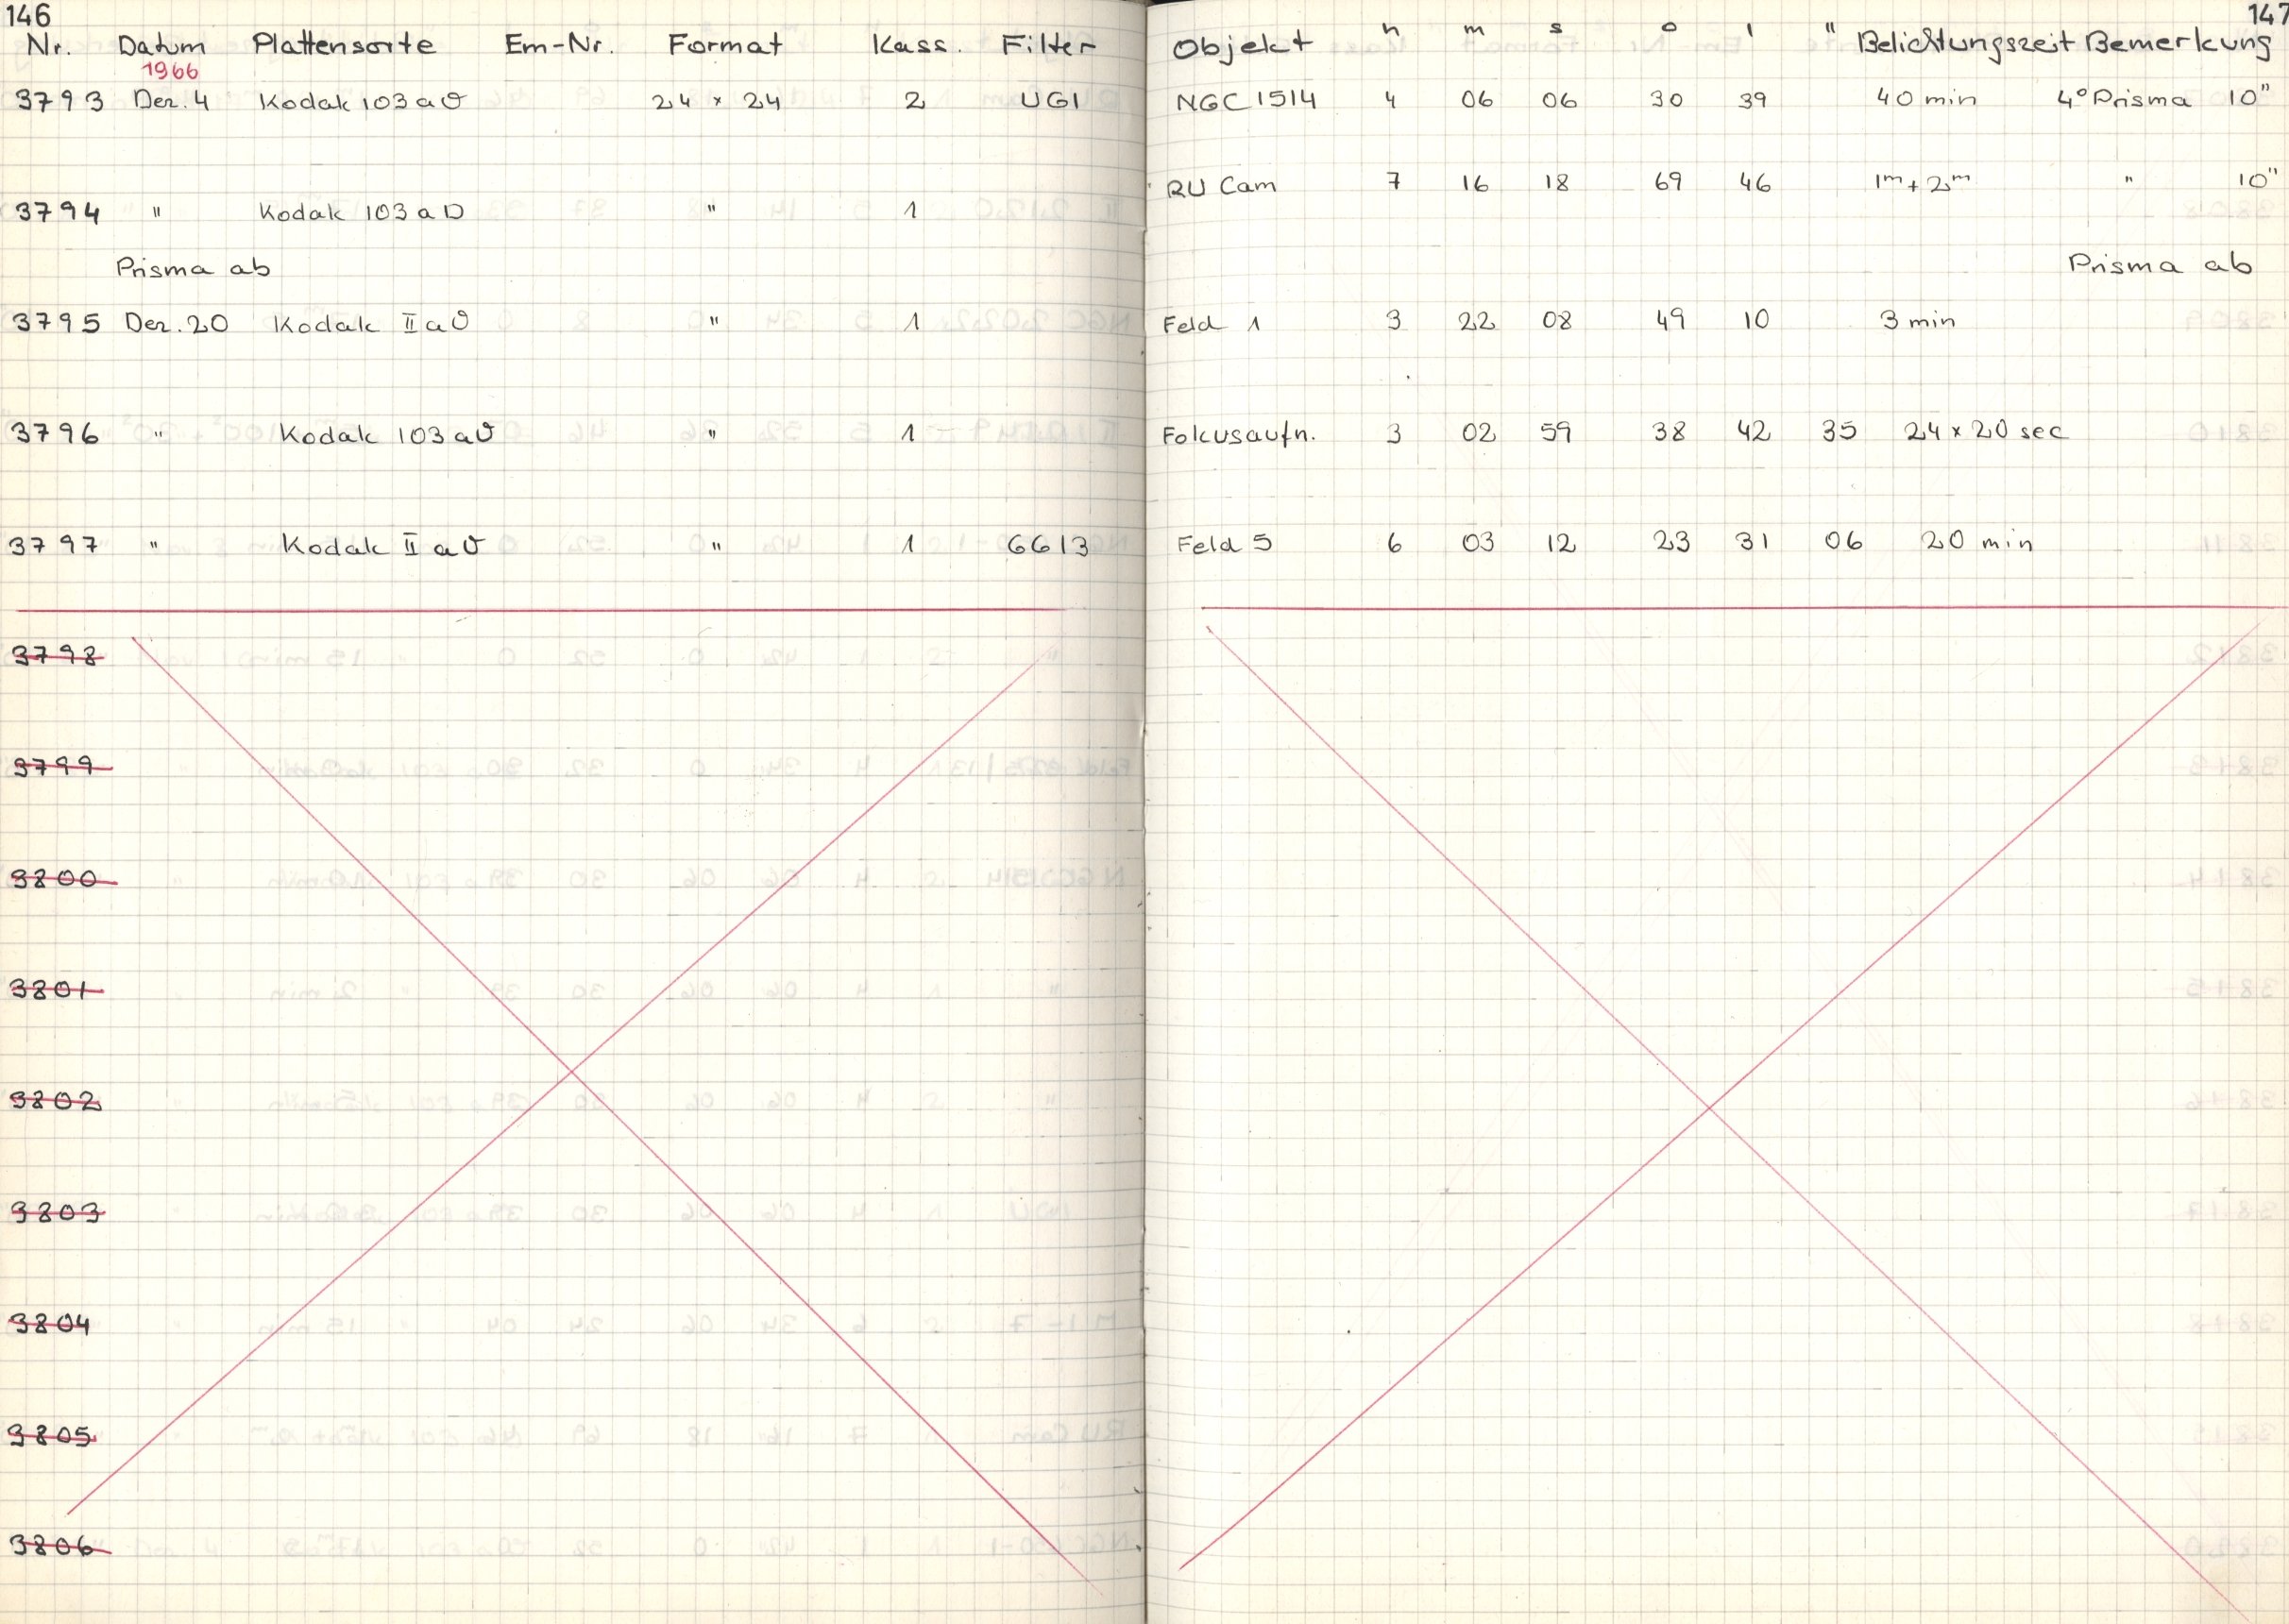 146
Nr. Datum Plattensorte Em-Nr. Format Kass. Filter
1966
3793 Dez. 4 Kodak 103 a O 24 × 24 2 UG1
3794 " Kodak 103 a D " 1
Prisma ab
3795 Dez. 20 Kodak II a O " 1
3796 " Kodak 103 a O " 1
3797 " Kodak II a O " 1 6613
3798
3799
3800
3801
3802
3803
3804
3805
3806
147
Objekt h m s o ' " Belichtungszeit Bemerkung
NGC 1514 4 06 06 30 39 40 min 4° Prisma 10"
RU Cam 7 16 18 69 46 1m + 2m " 10"
Prisma ab
Feld 1 3 22 08 49 10 3 min
Fokusaufn. 3 02 59 38 42 35 24 × 20 sec
Feld 5 6 03 12 23 31 06 20 min